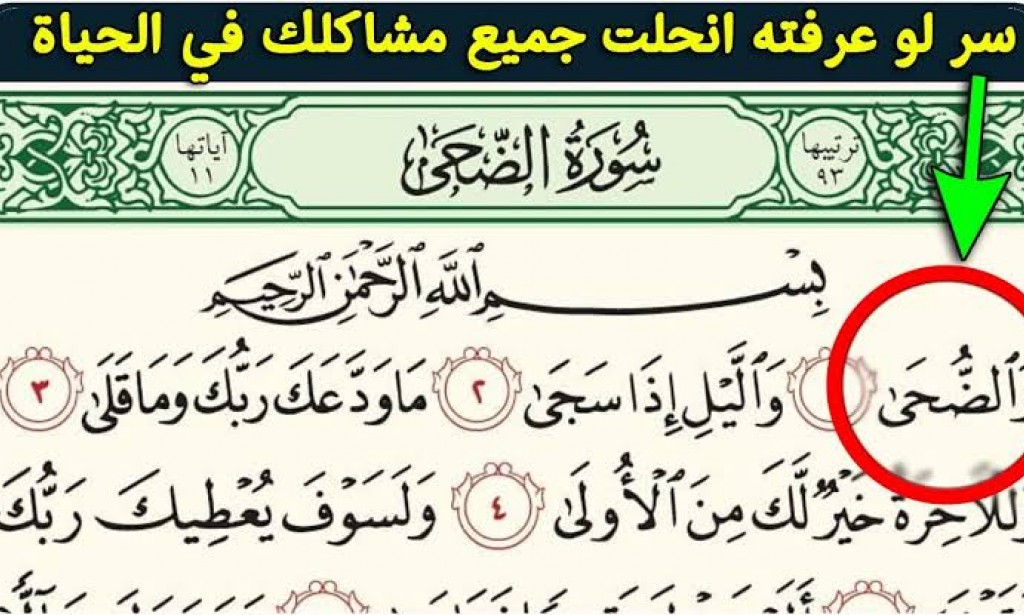 سر لو عرفته انحلت جميع مشاكلك في الحياة
ترتيبها ٩٣
سُورَةُ الضُّحَىٰ
آياتها ١١
بِسْمِ ٱللَّهِ ٱلرَّحْمَٰنِ ٱلرَّحِيمِ
وَٱلضُّحَىٰ وَٱلَّيْلِ إِذَا سَجَىٰ ٢ مَا وَدَّعَكَ رَبُّكَ وَمَا قَلَىٰ ٣
وَلَلْآخِرَةُ خَيْرٌ لَّكَ مِنَ ٱلْأُولَىٰ ٤ وَلَسَوْفَ يُعْطِيكَ رَبُّكَ